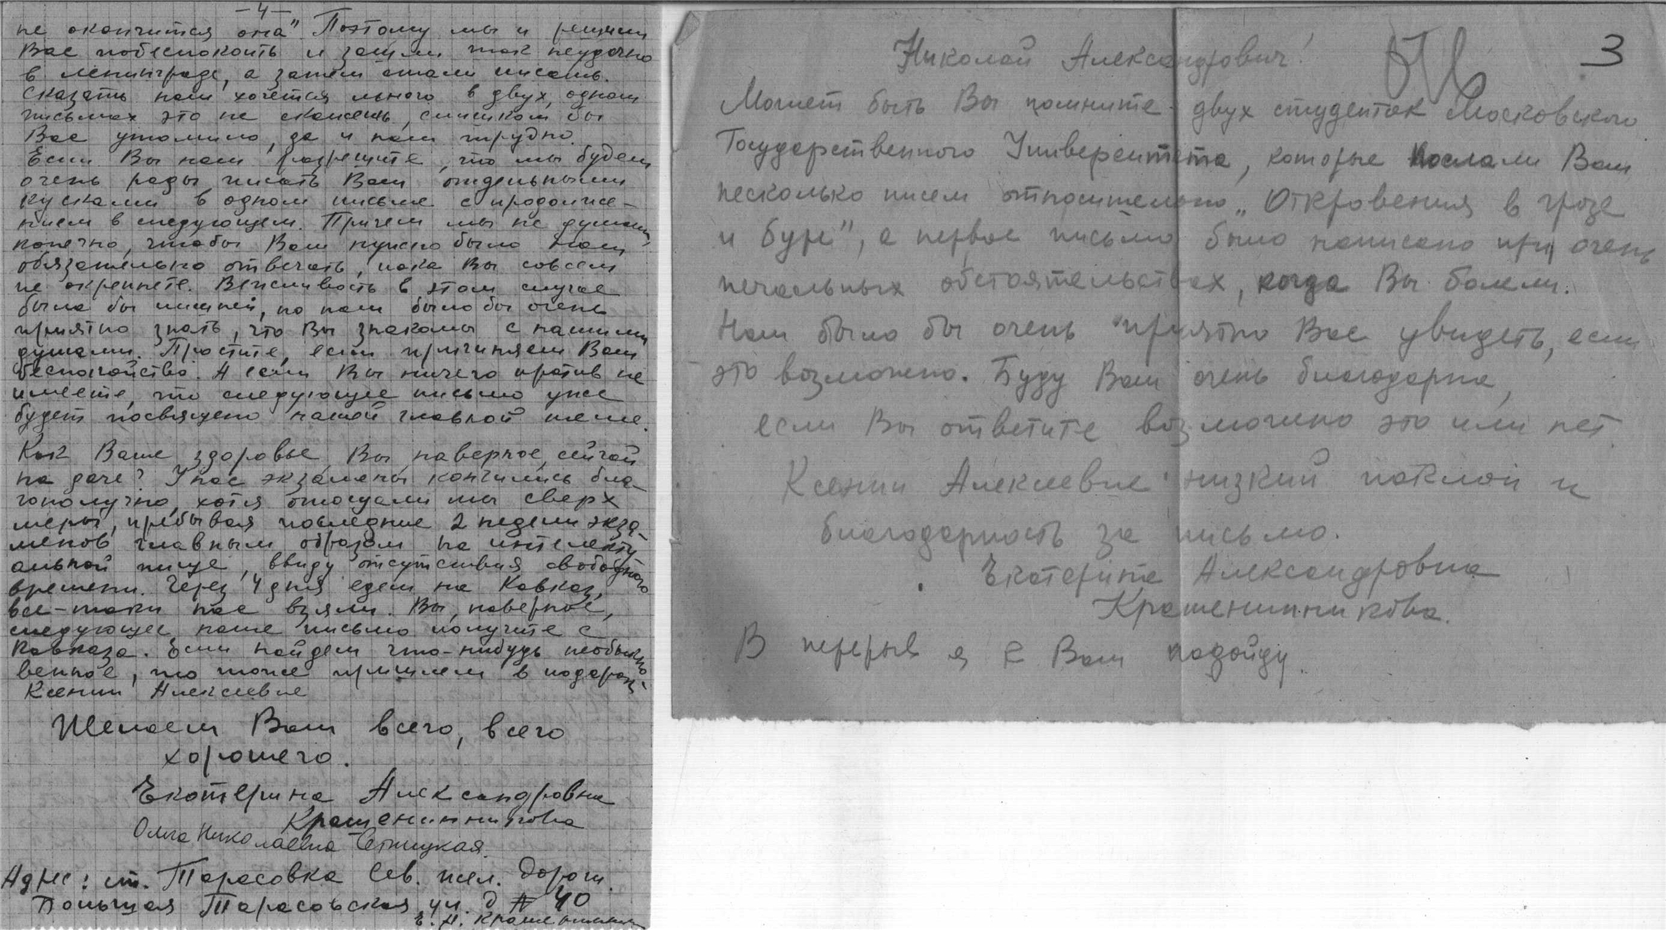 —4—
не окончится она" Поэтому мы и решили
Вас побеспокоить и зашли так неудачно
в Ленинграде, а затем стали писать.
Сказать нам хочется много в двух, одном
письмах это не скажешь, слишком бы
Вас утомило, да и нам трудно.
Если Вы нам разрешите, то мы будем
очень рады писать Вам отдельными
кусками в одном письме с продолже-
нием в следующем. Причем мы не думаем,
конечно, чтобы Вам нужно было нам
обязательно отвечать, пока Вы совсем
не окрепнете. Вежливость в этом случае
была бы лишней, но нам было бы очень
приятно знать, что Вы знакомы с нашими
думами. Простите, если причиняем Вам
беспокойство. А если Вы ничего против не
имеете, то следующее письмо уже
будет посвящено нашей главной теме.
Как Ваше здоровье, Вы наверное сейчас
на даче? У нас экзамены кончились бла-
гополучно, хотя отощали мы сверх
меры, пребывая последние 2 недели экза-
менов главным образом на интеллекту-
альной пище, ввиду отсутствия свободного
времени. Через 4 дня едем на Кавказ,
все-таки нас взяли. Вы, наверное,
следующее наше письмо получите с
Кавказа. Если найдем что-нибудь необыкно-
венное, то тоже пришлем в подарок
Ксении Алексеевне
Желаем Вам всего, всего
хорошего.
Екатерина Александровна
Крашенинникова
Ольга Николаевна Сетницкая.
Адрес: ст. Тарасовка Сев. жел. дорог.
Большая Тарасовская ул. д № 40
Е. А. Крашенинникова
3
Николай Александрович!
Может быть Вы помните двух студенток Московского
Государственного Университета, которые послали Вам
несколько писем относительно „Откровения в грозе
и буре", а первое письмо было написано при очень
печальных обстоятельствах, когда Вы болели.
Нам было бы очень приятно Вас увидеть, если
это возможно. Буду Вам очень благодарна,
если Вы ответите возможно это или нет.
Ксении Алексеевне низкий поклон и
благодарность за письмо.
Екатерина Александровна
Крашенинникова.
В перерыв я к Вам подойду.